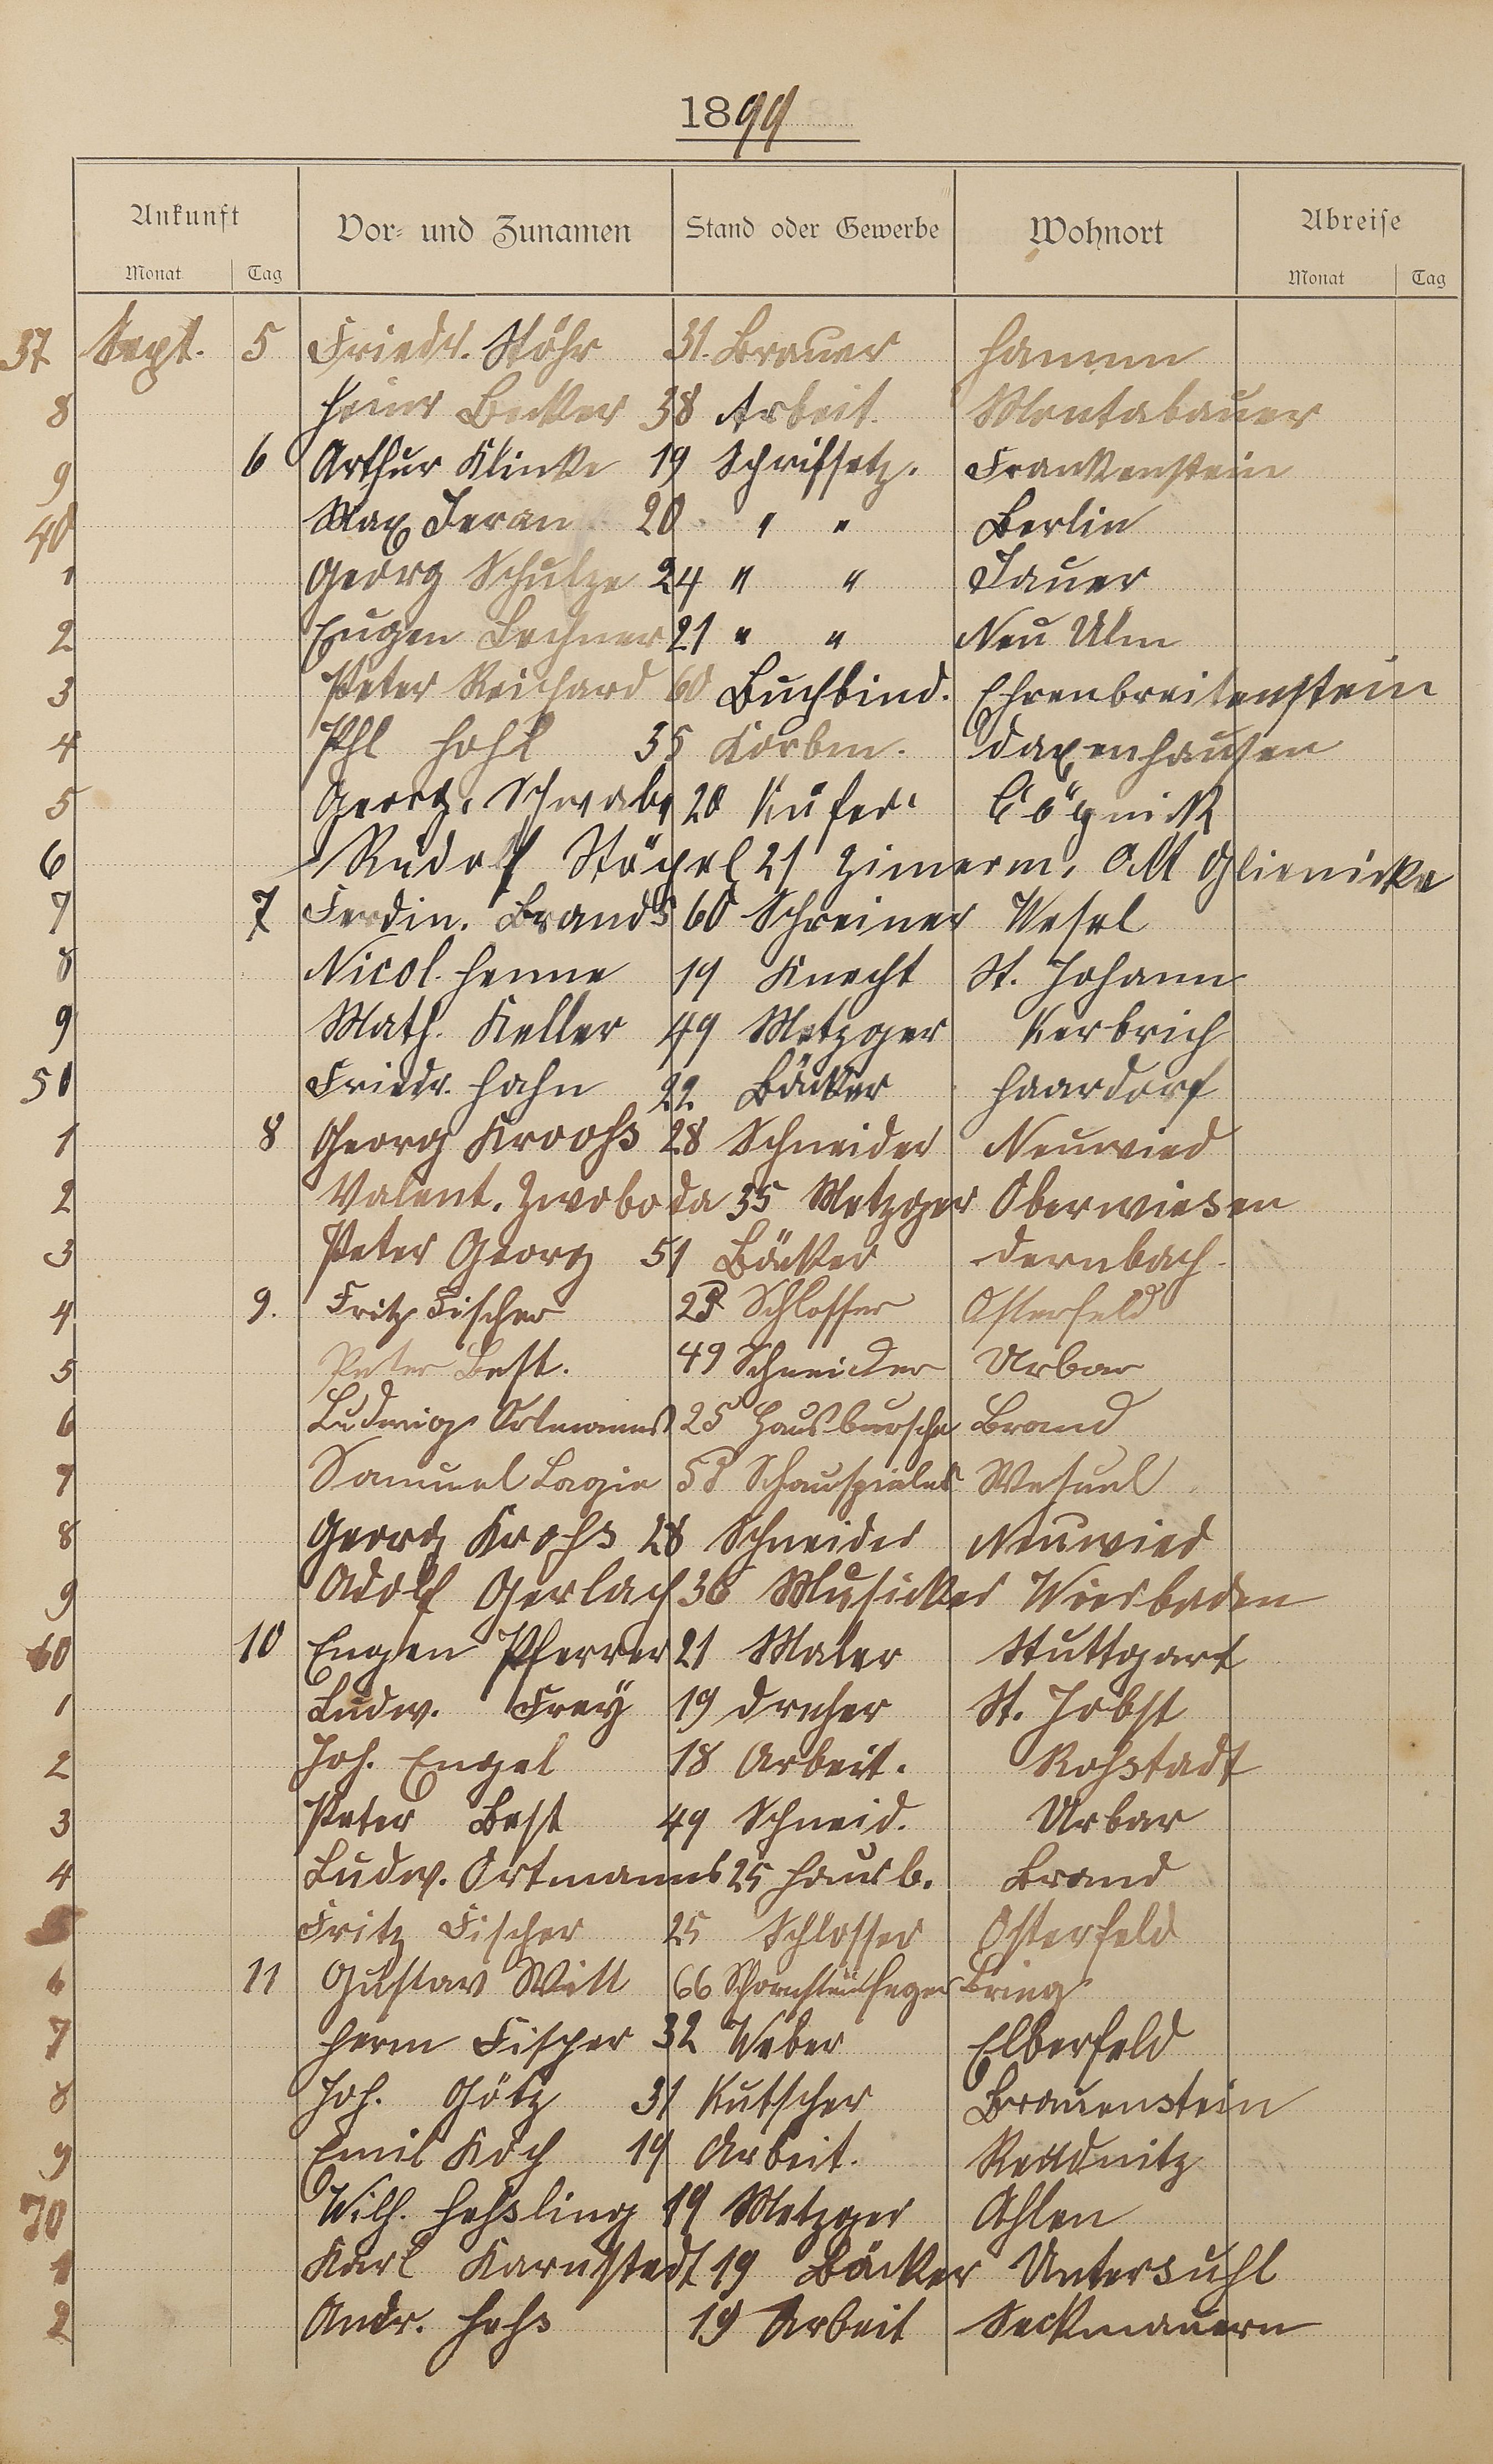 1899
Ankunft Vor- und Zunamen Stand oder Gewerbe Wohnort Abreise
Monat Tag Monat Tag
37 Sept. 5 Friedr. Stöhr 31. Brauer Hamm
8 Heinr Becker 38 Arbeit. Montabauer
9 6 Arthur Klinke 19 Schrifsetz. Frankenstein
40 Max Jeran 20 " " Berlin
1 Georg Schulze 24 " " Jauer
2 Eugen Lechner 21 " " Neu Ulm
3 Peter Reichard 60 Buchbind. Ehrenbreitenstein
4 Phl Hohl 35 Korbm. Daxenhausen
5 Georg. Schwabe 20 Küfer.
6 Rudolf Stöpel 21 Zimerm. Alt Glienicke
7 7 Ferdin. Brands 60 Schreiner Wesel
8 Nicol. Henne 19 Knecht St. Johann
9 Math. Keller 49 Metzger Kerbrich
50 Friedr. Hahn 22 Bäcker Haardorf
1 8 Georg Kroohs 28 Schneider Neuwied
2 Valent. Zwoboda 35 Metzger Oberwiesen
3 Peter Georg 51 Bäcker Dernbach.
4 9. Fritz Fischer Schlosser Osterfeld
5 Peter Best. 49 Schneider Urbar
6 Ludwig Ortmanns 25 Hausbursche Brand
7 Samuel Schauspieler
8 Georg Krohs 28 Schneider Neuwied
9 Adolf Gerlach 36 Musicker Wiesbaden
60 10 Eugen Pferrer 21 Maler Stuttgart
1 Ludw. Frey 19 Dreher St. Jobst
2 Joh. Engel 18 Arbeit. Rohstadt
3 Peter Best 49 Schneid. Urbar
4 Ludw. Ortmanns 25 Hausb. Brand
5 Fritz Fischer 25 Schlosser Osterfeld
6 11 Gustav Witt 66 Schornsteinfeger Bring
7 Herm Fisher 32 Weber Elberfeld
8 Joh. Götz 31 Kutscher Brauenstein
9 Emil Koch 19 Arbeit. Reudnitz
70 Wilh. Hehsling 19 Metzger Ahlen
1 Karl Karnstedt 19 Bäcker Untersuhl
2 Andr. Hehs 19 Arbeit Seckmauern